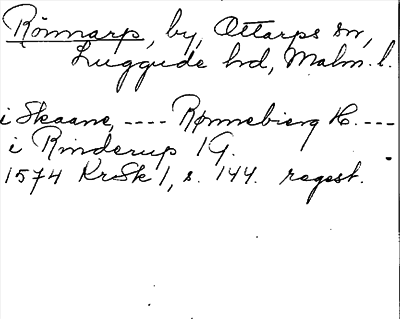 Rönnarp, by, Ottarps sn,
Luggude hd, Malm. l.
i Skaane, ---- Rønnebierg H. ---
i Rinderup 1 G.
1574 KrSk 1, s. 144. regest.